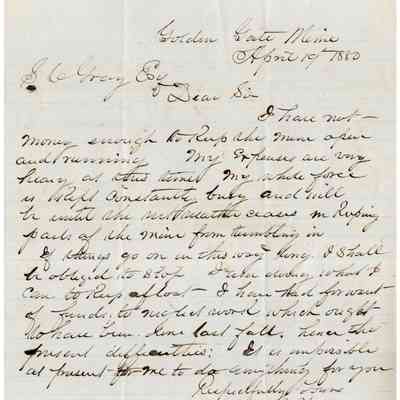 Golden Gate Mine
April 19th 1880
S C Gray Esq
Dear Sir
I have not
money enough to Keep the mine open
and running My Expenses are very
heavy at this time My whole force
is Kept Constantly busy and will
be until the wet weather ceases in Keeping
parts of the mine from tumbling in
If things go on in this way long, I Shall
be obliged to Stop I am doing what I
can to Keep afloat — I have had for want
of funds, to neglect work which ought
to have been done last fall, hence the
present difficulties; It is impossible
at present for me to do anything for you
Respectfully Yours